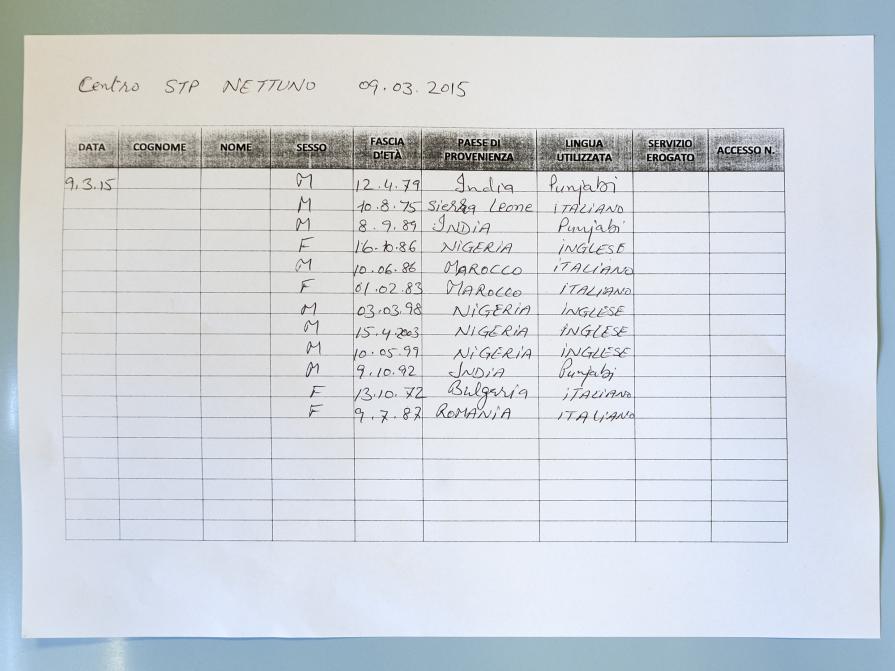 Centro STP NETTUNO 09.03.2015
DATA COGNOME NOME SESSO FASCIA D'ETÀ PAESE DI PROVENIENZA LINGUA UTILIZZATA SERVIZIO EROGATO ACCESSO N.
9.3.15 M 12.4.79 India Punjabi
M 10.8.75 Sierra Leone iTALiANO
M 8.9.89 INDiA Punjabi
F 16.10.86 NiGERiA iNGLESE
M 10.06.86 MAROCCO iTALiANO
F 01.02.83 MAROCCO iTALiANO
M 03.03.98 NiGERiA iNGLESE
M 15.4.2003 NiGERiA iNGLESE
M 10.05.99 NiGERiA iNGLESE
M 9.10.92 INDiA Punjabi
F 13.10.72 Bulgaria iTALiANO
F 9.7.87 ROMANiA iTALiANO